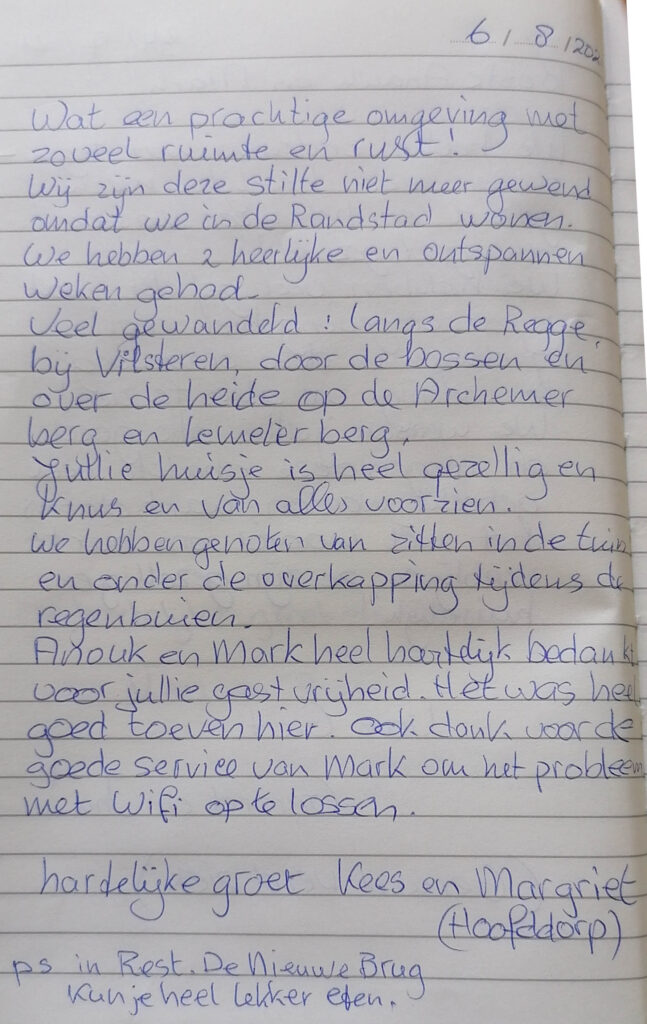 6 / 8 / 202
Wat een prachtige omgeving met
zoveel ruimte en rust!
Wij zijn deze stilte niet meer gewend
omdat we in de Randstad wonen.
We hebben 2 heerlijke en ontspannen
weken gehad.
Veel gewandeld: langs de Regge,
bij Vilsteren, door de bossen en
over de heide op de Archemer
berg en Lemelerberg.
Jullie huisje is heel gezellig en
knus en van alles voorzien.
We hebben genoten van zitten in de tuin
en onder de overkapping tijdens de
regenbuien.
Anouk en Mark heel hartelijk bedankt
voor jullie gastvrijheid. Het was heel
goed toeven hier. Ook dank voor de
goede service van Mark om het probleem
met Wifi op te lossen.
hartelijke groet Kees en Margriet
(Hoofddorp)
ps in Rest. De Nieuwe Brug
kun je heel lekker eten.